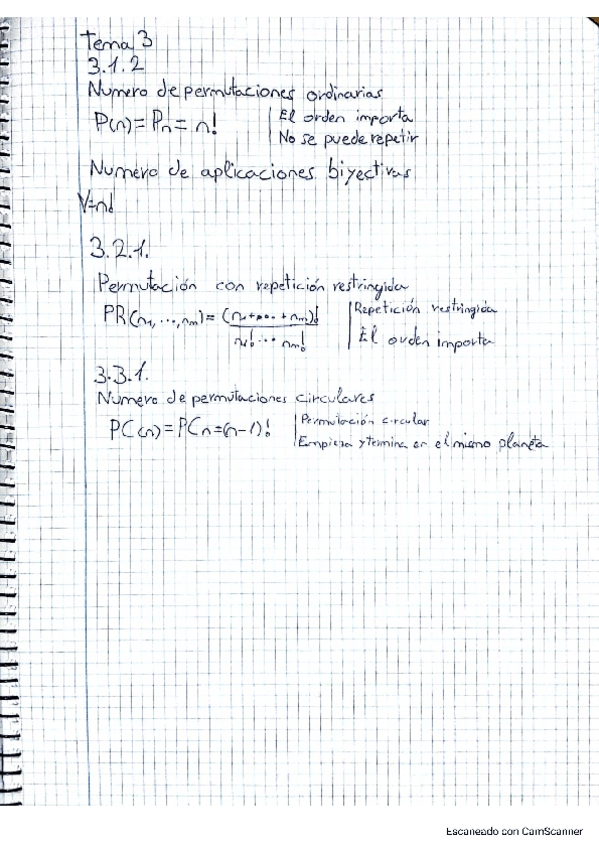 Tema 3
3.1.2
Numero de permutaciones ordinarias
P(n)=Pn=n! | El orden importa
No se puede repetir
Numero de aplicaciones biyectivas
V=n!
3.2.1.
Permutación con repetición restringida
PR(n1,...,nm)=(n1+...+nm)!/n1!...nm! | Repetición restringida
El orden importa
3.3.1.
Numero de permutaciones circulares
PC(n)=PCn=(n-1)! | Permutación circular
Empieza y termina en el mismo planeta
Escaneado con CamScanner